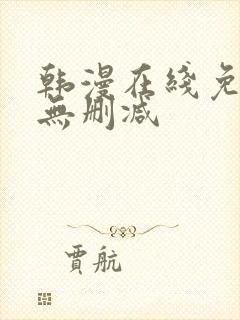 韩漫在线免
無删减
贾航